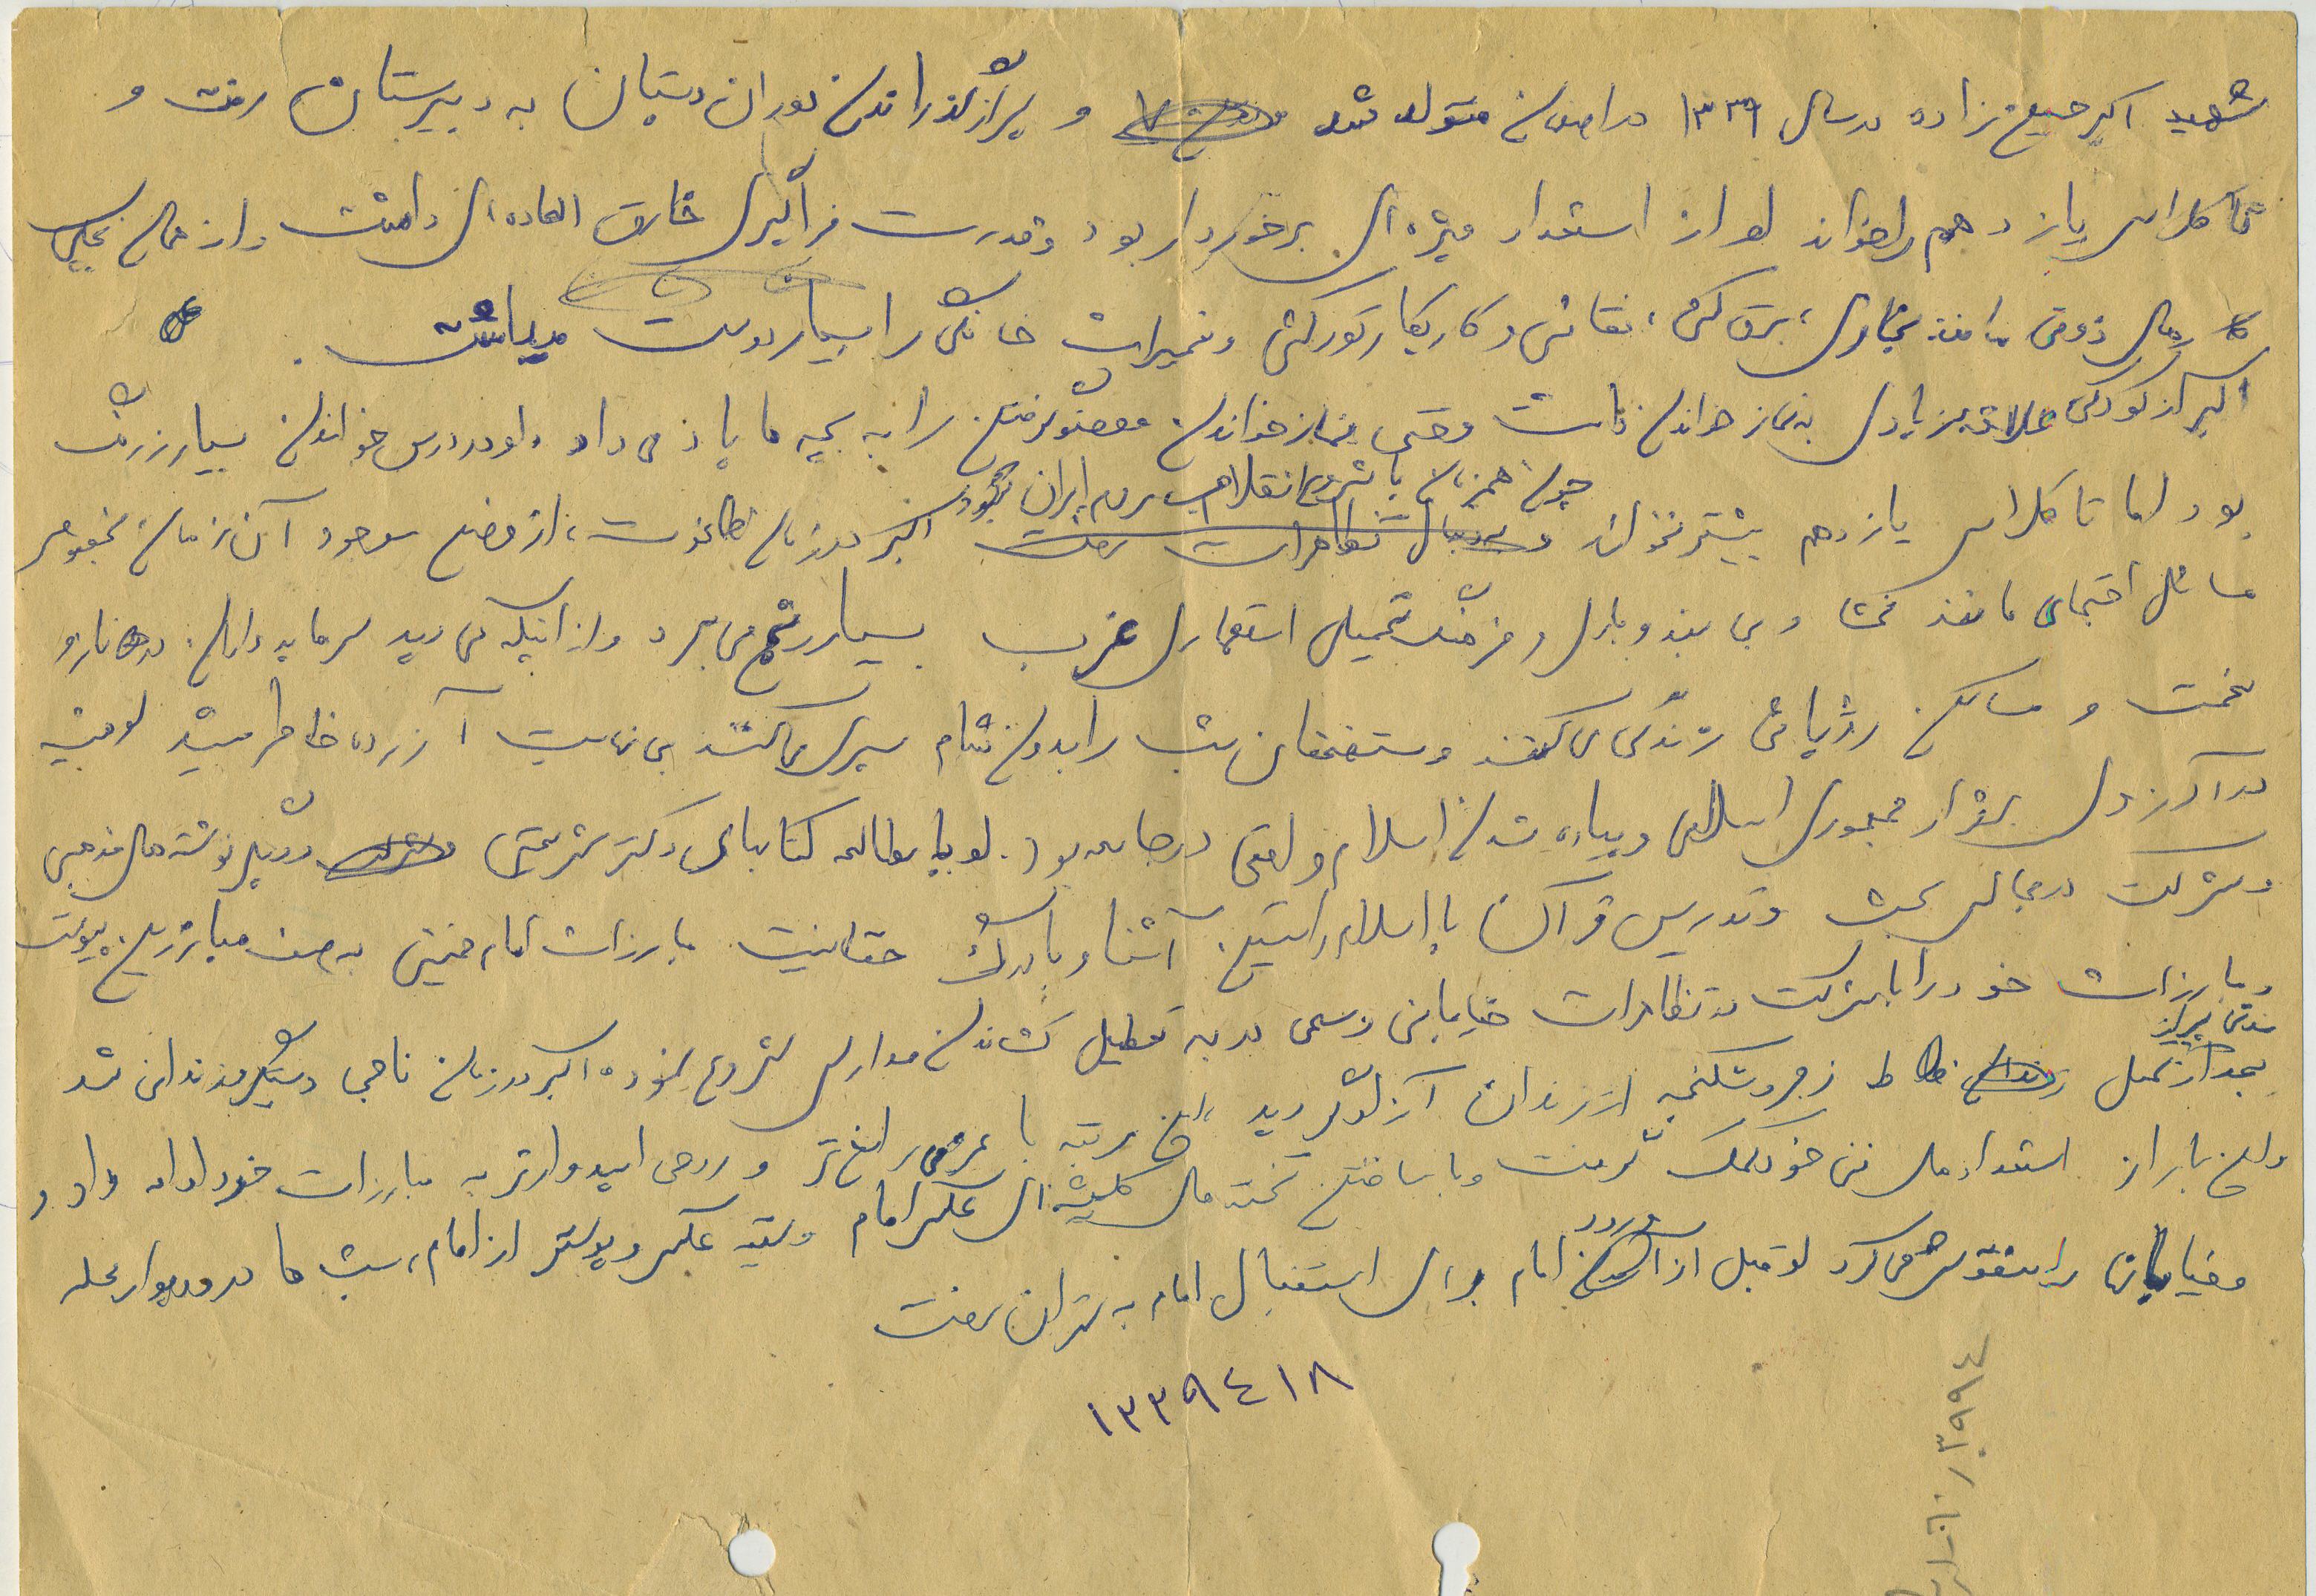 شهید اکبر سمیع زاده در سال ۱۳۳۹ در اصفهان متولد شد و پس از گذراندن دوران دبستان به دبیرستان رفت و
تا کلاس یازدهم را خواند او از استعداد ویژه ای برخوردار بود و قدرت فراگیری خارق العاده ای داشت و از همان بچگی
کارهای ذوقی مانند نجاری، برق کشی، نقاشی و کاریکاتور کشی و تعمیرات خانگی را بسیار دوست میداشت.
اکبر از کودکی علاقه زیادی به نماز خواندن داشت و حتی نماز خواندن و وضو گرفتن را به بچه ها یاد می داد و او در درس خواندن بسیار زرنگ
بود اما تا کلاس یازدهم بیشتر نخواند چون همزمان با شروع انقلاب مردم ایران بود
و بدنبال تظاهرات رفت اکبر در زمان طاغوت، از وضع موجود آن زمان بخصوص
مسائل اجتماعی مانند فحشا و بی بند و باری و فرهنگ تحمیلی استعماری غرب بسیار رنج می برد و از اینکه می دید سرمایه داران در ناز و
نعمت و مسکن رؤیائی زندگی می کنند و مستضعفان شب را بدون شام سپری می کنند بی نهایت آزرده خاطر میشد او همیشه
در آرزوی برقراری جمهوری اسلامی و پیاده شدن اسلام واقعی در جامعه بود. او با مطالعه کتابهای دکتر شریعتی و دیگر نوشته های مذهبی
و شرکت در مجالس بحث و تدریس قرآن با اسلام راستین آشنا و با درک حقانیت مبارزات امام خمینی به صف مبارزین پیوست
و مبارزات خود را با شرکت در تظاهرات خیابانی و سعی در به تعطیل کشاندن مدارس شروع نمود. اکبر در زمان ناجی دستگیر و زندانی شد
مدتی پس از
بعد از تحمل زجر و شکنجه از زندان آزاد گردید، این مرتبه با عزمی راسخ تر و روحی امیدوارتر به مبارزات خود ادامه داد و
و این بار از استعدادهای فنی خود کمک گرفت و با ساختن تخته های کلیشه ای عکس امام و تهیه عکس و پوستر از امام، شب ها در و دیوار محله
و خیابانها را منقوش می کرد او قبل از ورود امام برای استقبال امام به تهران رفت
۱۳۳۹۴۱۸